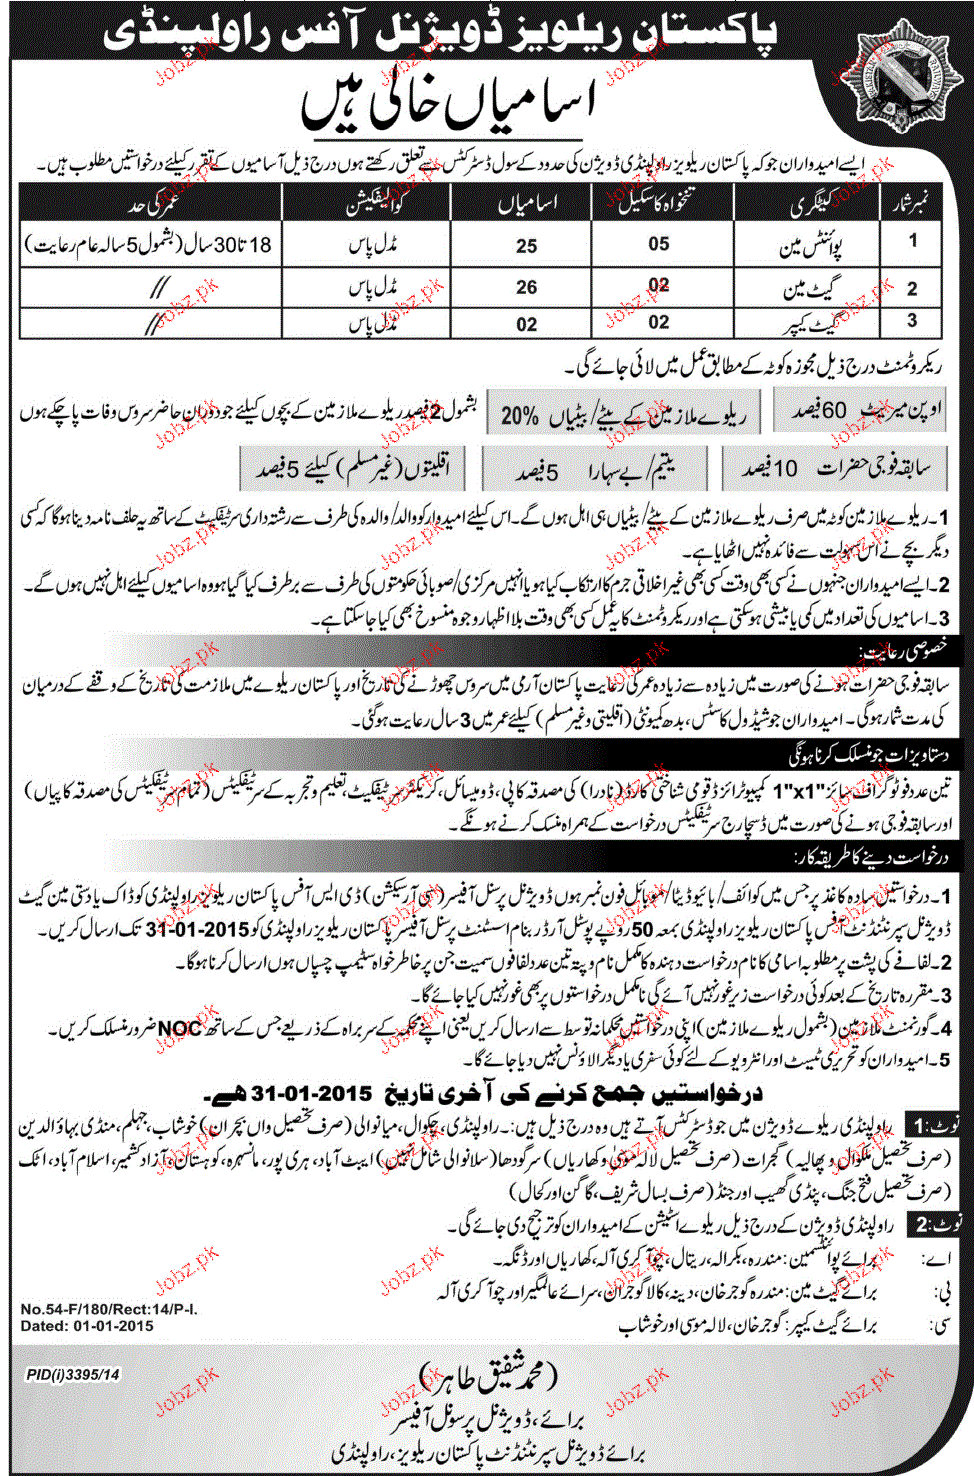 پاکستان ریلویز ڈویژنل آفس راولپنڈی
اسامیاں خالی ہیں
ایسے امیدواران جو کہ پاکستان ریلویز راولپنڈی ڈویژن کی حدود کے سول ڈسٹرکٹس سے تعلق رکھتے ہوں درج ذیل آسامیوں کے تقرر کیلئے درخواستیں مطلوب ہیں۔
نمبر شمار کیٹگری تنخواہ کا سکیل اسامیاں کوالیفکیشن عمر کی حد
1 پوائنٹس مین 05 25 مڈل پاس 18 تا 30 سال (بشمول 5 سالہ عام رعایت)
2 گیٹ مین 02 26 مڈل پاس //
3 گیٹ کیپر 02 02 مڈل پاس //
ریکروٹمنٹ درج ذیل مجوزہ کوٹہ کے مطابق عمل میں لائی جائے گی۔
اوپن میرٹ 60 فیصد ریلوے ملازمین کے بیٹے/ بیٹیاں 20% بشمول 2 فیصد ریلوے ملازمین کے بچوں کیلئے جو دوران حاضر سروس وفات پا چکے ہوں
سابقہ فوجی حضرات 10 فیصد یتیم/ بے سہارا 5 فیصد اقلیتوں (غیر مسلم) کیلئے 5 فیصد
1۔ ریلوے ملازمین کوٹہ میں صرف ریلوے ملازمین کے بیٹے/ بیٹیاں ہی اہل ہوں گے۔ اس کیلئے امیدوار کو والد/ والدہ کی طرف سے رشتہ داری سرٹیفکیٹ کے ساتھ یہ حلف نامہ دینا ہو گا کہ کسی
دیگر بچے نے اس سہولت سے فائدہ نہیں اٹھایا ہے۔
2۔ ایسے امیدواران جنہوں نے کسی بھی وقت کسی بھی غیر اخلاقی جرم کا ارتکاب کیا ہو یا انہیں مرکزی/ صوبائی حکومتوں کی طرف سے برطرف کیا گیا ہو وہ اسامیوں کیلئے اہل نہیں ہوں گے۔
3۔ اسامیوں کی تعداد میں کمی یا بیشی ہو سکتی ہے اور ریکروٹمنٹ کا یہ عمل کسی بھی وقت بلا اظہار وجوہ منسوخ بھی کیا جا سکتا ہے۔
خصوصی رعایت:
سابقہ فوجی حضرات ہونے کی صورت میں زیادہ سے زیادہ عمر کی رعایت پاکستان آرمی میں سروس چھوڑنے کی تاریخ اور پاکستان ریلوے میں ملازمت کی تاریخ کے وقفے کے درمیان
کی مدت شمار ہو گی۔ امیدواران جو شیڈول کاسٹس، بدھ کمیونٹی (اقلیتی و غیر مسلم) کیلئے عمر میں 3 سال رعایت ہو گئی۔
دستاویزات جو منسلک کرنا ہونگی
تین عدد فوٹو گراف سائز "1x"1 کمپیوٹرائزڈ قومی شناختی کارڈ (نادرا) کی مصدقہ کاپی، ڈومیسائل، کریکٹر سرٹیفکیٹ، تعلیم و تجربہ کے سرٹیفکیٹس (تمام سرٹیفکیٹس کی مصدقہ کاپیاں)
اور سابقہ فوجی ہونے کی صورت میں ڈسچارج سرٹیفکیٹس درخواست کے ہمراہ منسک کرنے ہونگے۔
درخواست دینے کا طریقہ کار:
1۔ درخواستیں سادہ کاغذ پر جس میں کوائف/ بائیو ڈیٹا/ موبائل فون نمبر ہوں ڈویژنل پرسنل آفیسر (پی آر سیکشن) ڈی ایس آفس پاکستان ریلویز راولپنڈی کو ڈاک یا دستی مین گیٹ
ڈویژنل سپرنٹنڈنٹ آفس پاکستان ریلویز راولپنڈی بمعہ 50 روپے پوسٹل آرڈر بنام اسسٹنٹ پرسنل آفیسر پاکستان ریلویز راولپنڈی کو 31-01-2015 تک ارسال کریں۔
2۔ لفافے کی پشت پر مطلوبہ اسامی کا نام درخواست دہندہ کا مکمل نام و پتہ تین عدد لفافوں سمیت جن پر خاطر خواہ سٹیمپ چسپاں ہوں ارسال کرنا ہو گا۔
3۔ مقررہ تاریخ کے بعد کوئی درخواست زیر غور نہیں آئے گی نامکمل درخواستوں پر بھی غور نہیں کیا جائے گا۔
4۔ گورنمنٹ ملازمین (بشمول ریلوے ملازمین) اپنی درخواستیں محکمانہ توسط سے ارسال کریں یعنی اپنے محکمہ کے سربراہ کے ذریعے جس کے ساتھ NOC ضرور منسلک کریں۔
5۔ امیدواران کو تحریری ٹیسٹ اور انٹرویو کے لئے کوئی سفری یا دیگر الاؤنس نہیں دیا جائے گا۔
درخواستیں جمع کرنے کی آخری تاریخ 31-01-2015 ہے۔
نوٹ:1 راولپنڈی ریلوے ڈویژن میں جو ڈسٹرکٹس آتے ہیں وہ درج ذیل ہیں:۔ راولپنڈی، چکوال، میانوالی (صرف تحصیل واں بھچراں) خوشاب، جہلم، منڈی بہاؤالدین
(صرف تحصیل ملکوال و پھالیہ) گجرات (صرف تحصیل لالہ موسیٰ و کھاریاں) سرگودھا (سلانوالی شامل نہیں) ایبٹ آباد، ہری پور، مانسہرہ، کوہستان، آزاد کشمیر، اسلام آباد، اٹک
(صرف تحصیل فتح جنگ، پنڈی گھیب اور جنڈ (صرف بسال شریف، گاگن اور کحال)
نوٹ:2 راولپنڈی ڈویژن کے درج ذیل ریلوے اسٹیشن کے امیدواران کو ترجیح دی جائے گی۔
اے: برائے پوائنٹسمین: مندرہ، بکرالہ، ریتال، چوآ کری آلہ، کھاریاں اور ڈنگہ۔
بی: برائے گیٹ مین: مندرہ گوجر خان، دینہ، کالا گوجراں، سرائے عالمگیر اور چوآ کری آلہ
سی: برائے گیٹ کیپر: گوجر خان، لالہ موسی اور خوشاب
No.54-F/180/Rect:14/P-I.
Dated: 01-01-2015
PID(i)3395/14
(محمد شفیق طاہر)
برائے، ڈویژنل پرسونل آفیسر
برائے ڈویژنل سپرنٹنڈنٹ پاکستان ریلویز، راولپنڈی
Jobz.pk